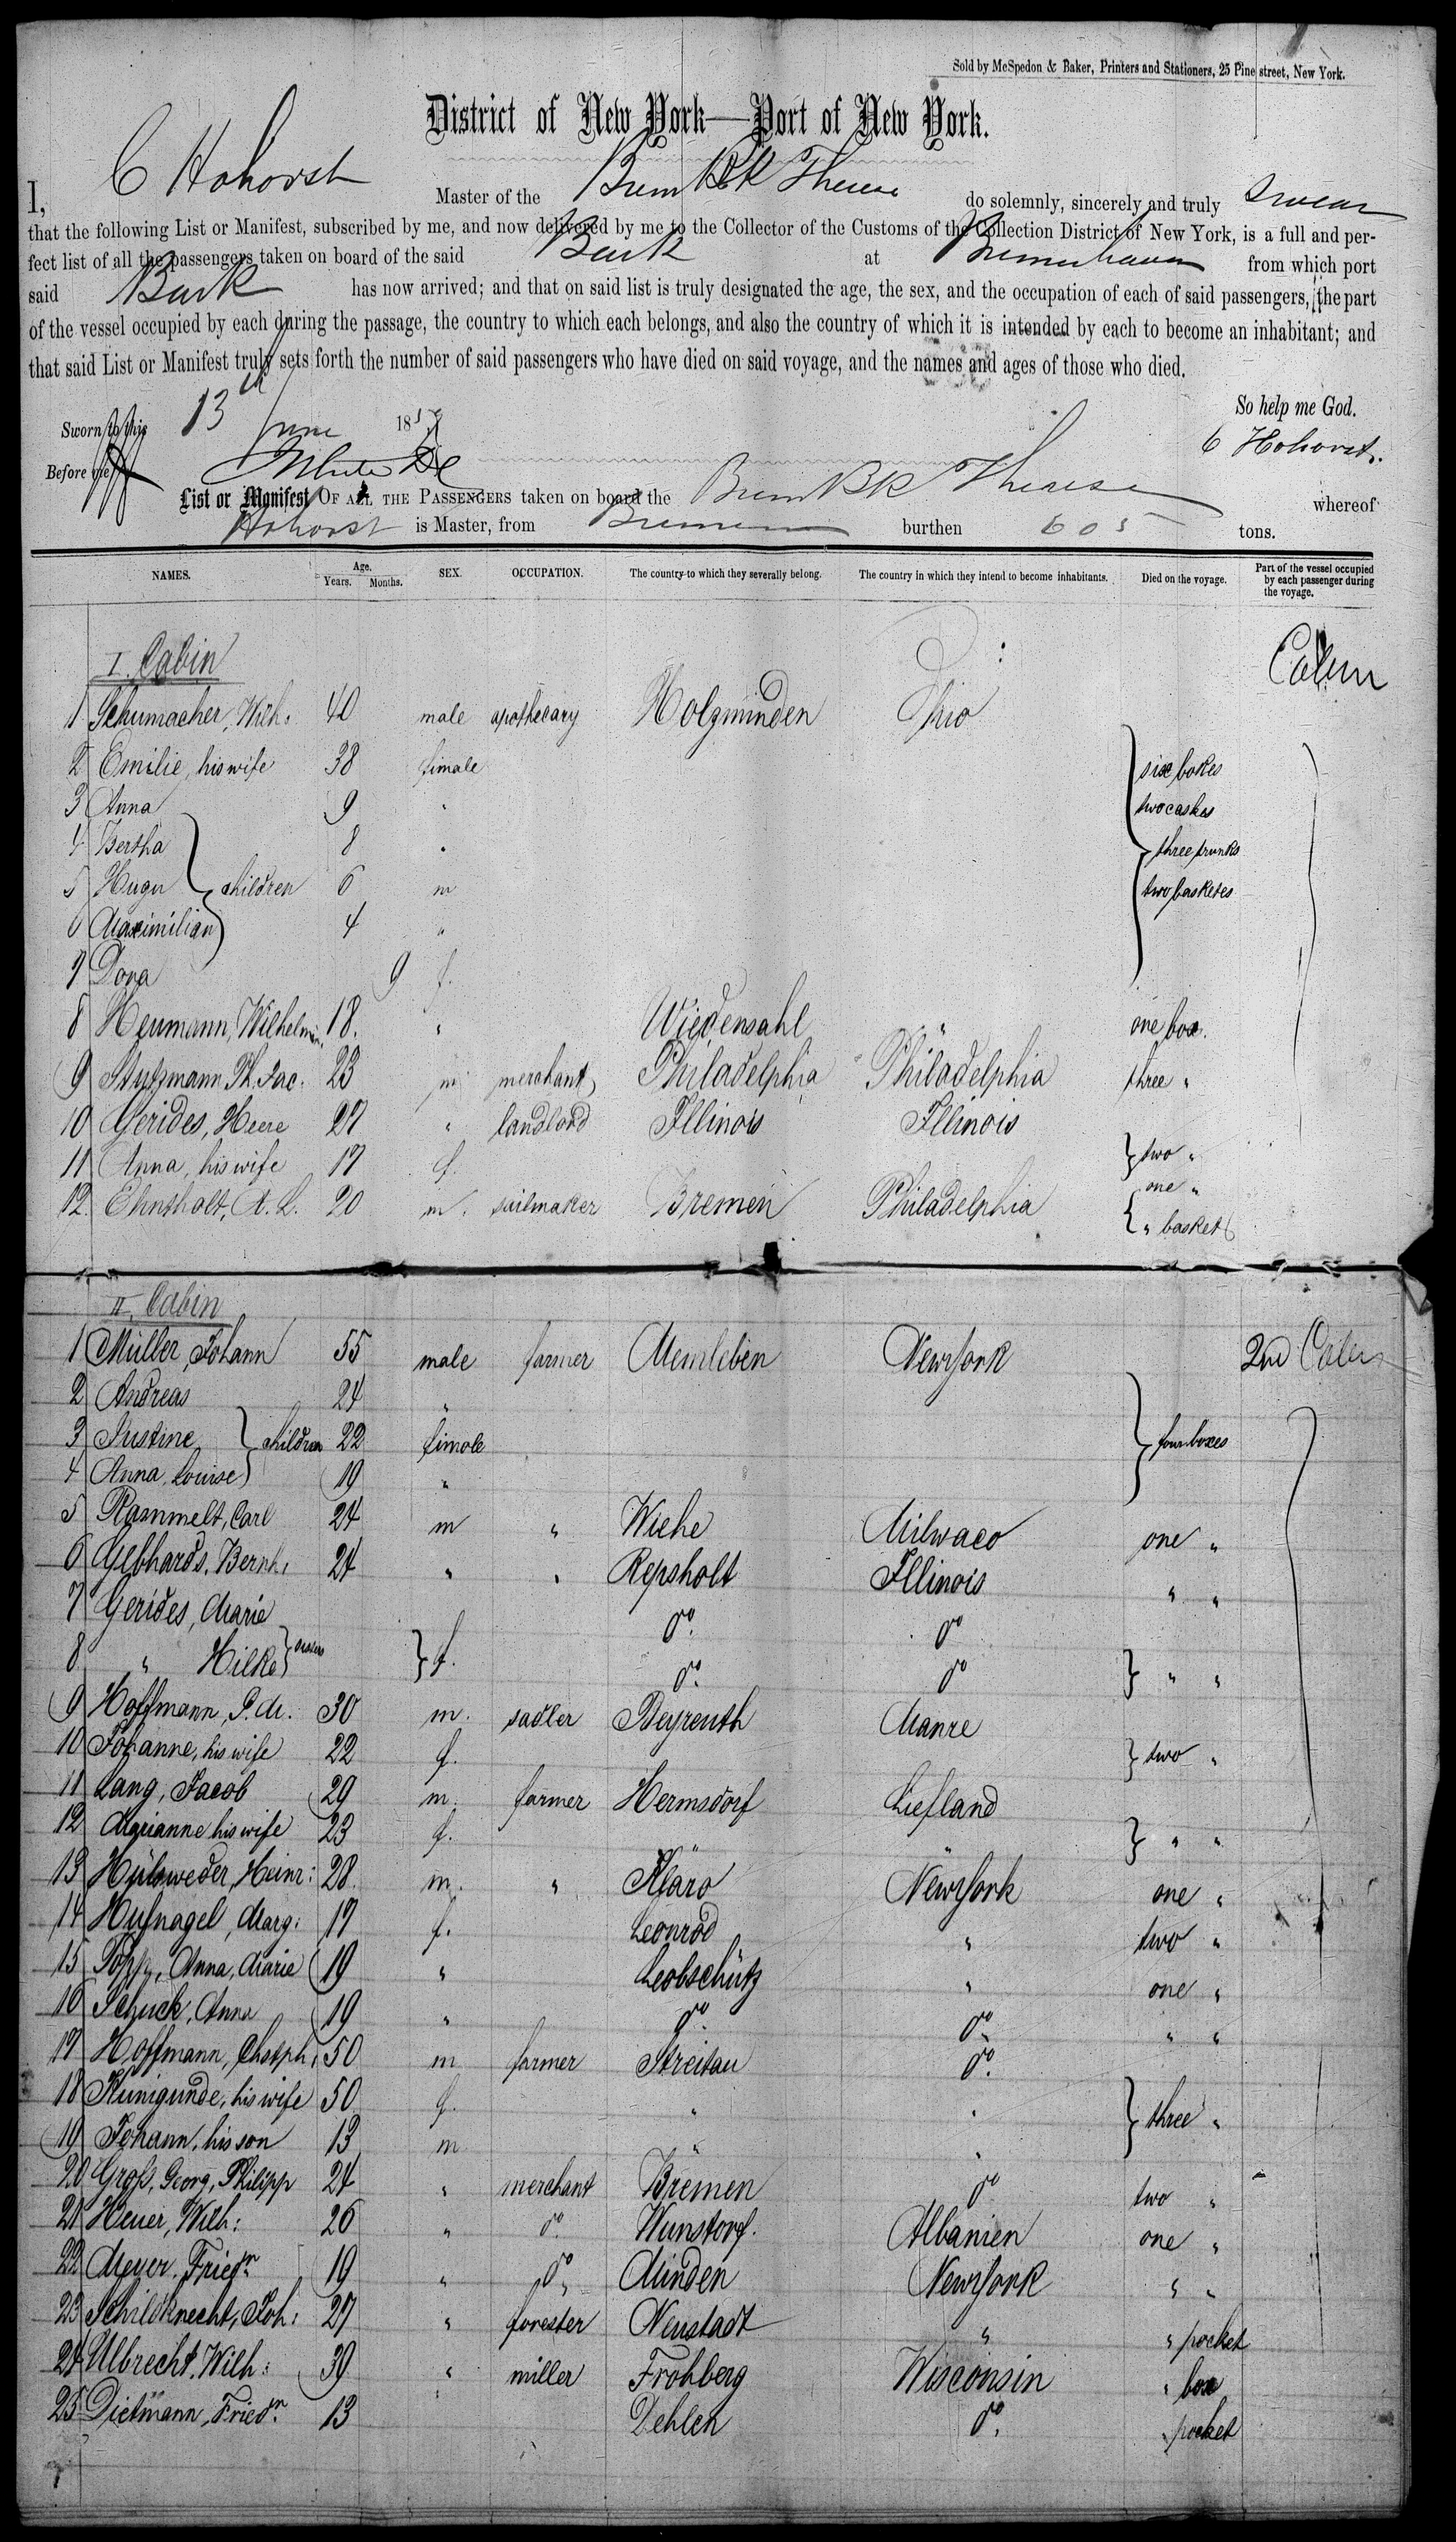 Sold by McSpedon & Baker, Printers and Stationers, 25 Pine street, New York.
District of New York—Port of New York.
I, C Hohorst Master of the Brem Bk Therese do solemnly, sincerely and truly swear
that the following List or Manifest, subscribed by me, and now delivered by me to the Collector of the Customs of the Collection District of New York, is a full and per-
fect list of all the passengers taken on board of the said Bark at Bremerhaven from which port
said Bark has now arrived; and that on said list is truly designated the age, the sex, and the occupation of each of said passengers, the part
of the vessel occupied by each during the passage, the country to which each belongs, and also the country of which it is intended by each to become an inhabitant; and
that said List or Manifest truly sets forth the number of said passengers who have died on said voyage, and the names and ages of those who died.
So help me God.
Sworn to this 13th June 185
C Hohorst.
Before me
List or Manifest OF ALL THE PASSENGERS taken on board the Brem Bk Therese whereof
Hohorst is Master, from Bremen burthen 605 tons.
NAMES. Age. Years. Months. SEX. OCCUPATION. The country to which they severally belong. The country in which they intend to become inhabitants. Died on the voyage. Part of the vessel occupied by each passenger during the voyage.
I. Cabin Cabin
1 Schumacher, Wilh: 40 male apothecary Holzminden Ohio
2 Emilie, his wife 38 fimale six boxes
3 Anna 9 " two caskes
4 Bertha 8 " three trunks
5 Hugu children 6 m two basketes
6 Maximilian 4 "
7 Dora 9 f.
8 Heumann, Wilhelmin. 18. " Wiedensahl " one box.
9 Stutzmann Ph. Jac. 23 m merchant Philadelphia Philadelphia three "
10 Gerides, Heere 27 " landlord Illinois Illinois
11 Anna, his wife 17 f. two "
12. Ehntholt, A. L. 20 m. sailmaker Bremen Philadelphia one "
" basket
II. Cabin
1 Müller, Johann 55 male farmer Memleben New York 2nd Cabin
2 Andreas 24 "
3 Justine children 22 fimale four boxes
4 Anna Louise 19 "
5 Rammelt, Carl 24 m " Wiehe Milwaco one "
6 Gebhards, Bernh: 24 " " Repsholt Illinois " "
7 Gerides, Marie do. do
8 " Hilke f. do. do " "
9 Hoffmann, P. M. 30 m. sadler Beyreuth Manre
10 Johanne, his wife 22 f. two "
11 Lang, Jacob 29 m. farmer Hermsdorf Liefland
12 Marianne his wife 23 f. " "
13 Hülsweder, Heinr: 28. m. " New York one "
14 Hufnagel, Marg: 17 f. Leonrod " two "
15 Popp, Anna, Marie 19 " Leobschütz " one "
16 Schuck, Anna 19 " do. do. " "
17 Hoffmann, Chstph: 50 m farmer Streitau do.
18 Kunigunde, his wife 50 f. " " three "
19 Johann, his son 13 m " "
20 Groß, Georg, Philipp 24 " merchant Bremen do two "
21 Heuer, Wilh: 26 " do. Wunstorf. Albanien one "
22 Meyer, Friedr. 19 " do. Minden New York " "
23 Schildknecht, Joh: 27 " forester Neustadt " " pocket
24 Ulbrecht, Wilh: 39 " miller Frohberg Wisconsin " box
25 Dietmann, Friedr. 13 Dehlen do. " pocket